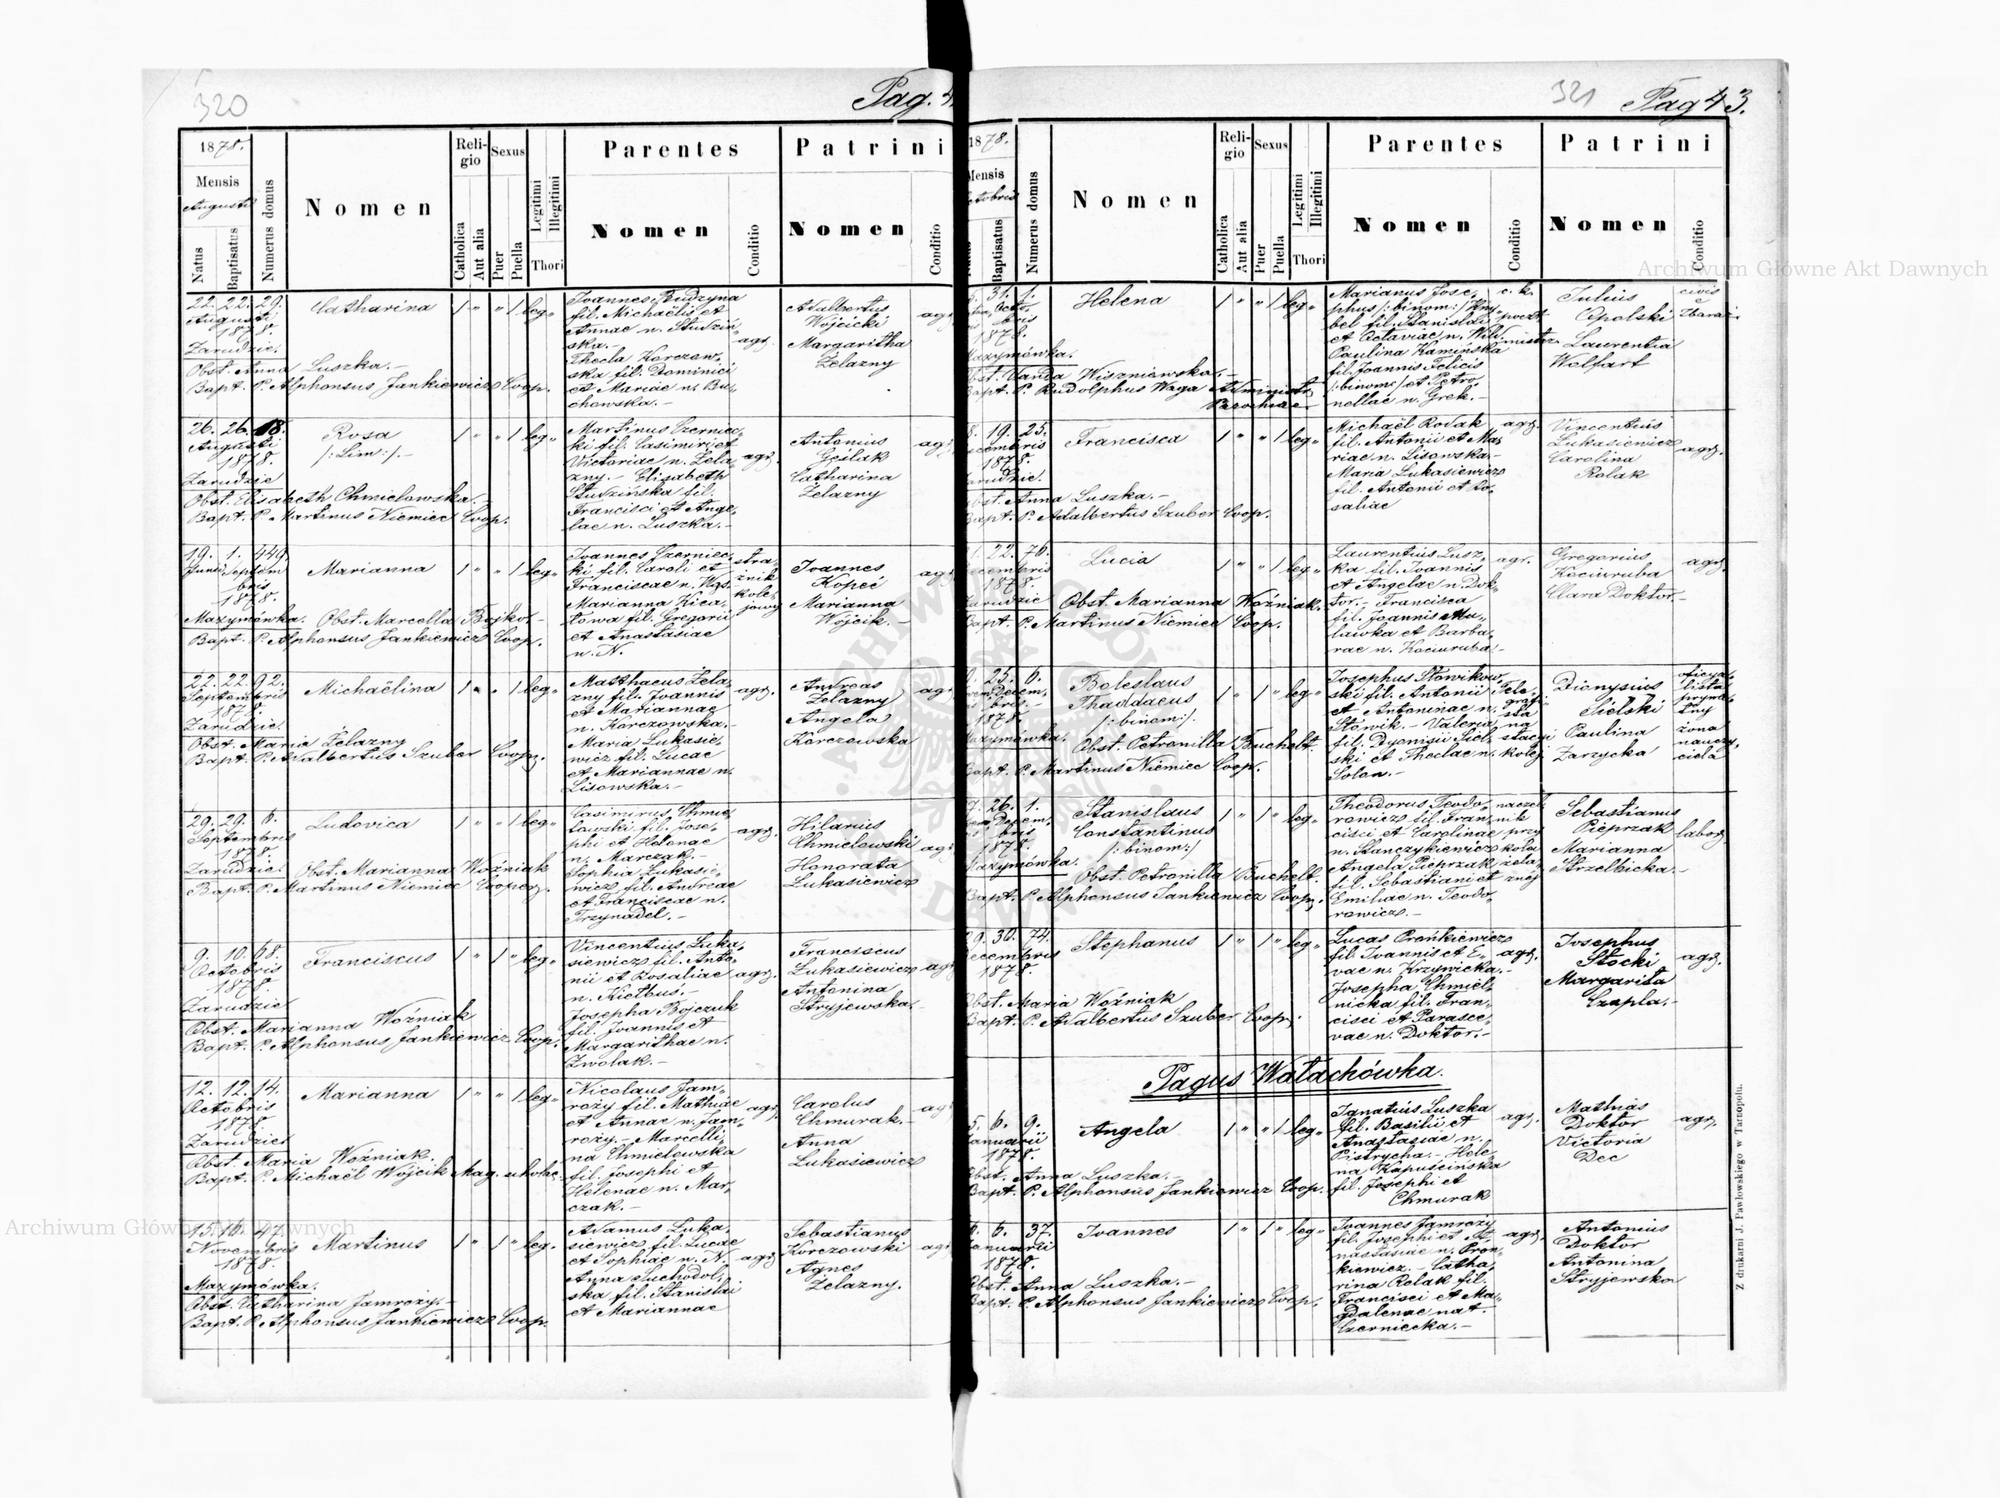 320
Pag. 4
1878.
Mensis
Augusti
Natus
Baptisatus
Numerus domus
Nomen
Religio
Catholica
Aut alia
Sexus
Puer
Puella
Legitimi
Illegitimi
Thori
Parentes
Nomen
Conditio
Patrini
Nomen
Conditio
22. 22. 29.
Augusti
1878.
Zarudzie.
Catharina
1 " " 1 leg.
Obst. Anna Luszka.-
Bapt. P. Alphonsus Jankiewicz Coop.
Joannes Dudzyna
fil. Michaëlis et
Annae n. Studziń
ska.-
Thecla Korczow,
ska fil. Dominici
et Mariae n. Bu,
chowska.-
agr.
Adalbertus
Wójcicki
Margaritha
Żelazny
agr
26. 26. 18.
Augusti
1878.
Zarudzie
Rosa
/: Lim :/.-
1 " " 1 leg.
Obst. Elisabeth Chmielowska.-
Bapt. P. Martinus Niemiec Coop.
Martinus Czerniec,
ki fil. Casimiri et
Victoriae n. Żela,
zny.- Elisabeth
Studzińska fil.
Francisci et Ange,
lae n. Luszka.-
agr.
Antonius
Cieślak
Catharina
Żelazny
agr
19. 1. 449
Junii Septem
bris
1878.
Marianna
1 " " 1 leg.
Mazymówka. Obst. Marcella Bojko.-
Bapt. P. Alphonsus Jankiewicz Coop.
Joannes Czerniec,
ki fil. Caroli et
Franciscae n. Wąs.
Marianna Kica,
towa fil. Gregorii
et Anastasiae
n. N.
stra,
żnik
kole,
jowy
Joannes
Kopeć
Marianna
Wójcik.-
ag
22. 22. 92.
Septembris
1878.
Zarudzie
Michaëlina
1 " " 1 leg.
Obst. Maria Żelazny
Bapt. P. Adalbertus Szuber Coop.
Matthaeus Żela,
zny fil. Joannis
et Mariannae
n. Korczowska.-
Maria Lukasie,
wicz fil. Lucae
et Mariannae n.
Lisowska.-
agr.
Andreas
Żelazny
Angela
Korczowska
ag
29. 29. 6.
Septembris
1878.
Zarudzie.
Ludovica
1 " " 1 leg.
Obst. Marianna Woźniak
Bapt. P. Martinus Niemiec Cooper.
Casimirus Chmie,
lowski fil. Jose,
phi et Helenae
n. Marczak.-
Sophia Lukasie,
wicz fil. Andreae
et Franciscae n.
Trzynadel.-
agr.
Hilarius
Chmielowski
Honorata
Lukasiewicz
agr
9. 10. 68.
Octobris
1878.
Zarudzie
Franciscus
1 " 1 " leg.
Obst. Marianna Woźniak
Bapt. P. Alphonsus Jankiewicz Coop.
Vincentius Luka,
siewicz fil. Anto,
nii et Rosaliae
n. Kiełbus.-
Josepha Bojczuk
fil. Joannis et
Margarithae n.
Zwolak.-
agr.
Franciscus
Lukasiewicz
Antonina
Stryjewska.
agr
12. 12. 14.
Octobris
1878.
Zarudzie
Marianna
1 " " 1 leg.
Obst. Maria Woźniak.
Bapt. P. Michaël Wójcik Mag. scholae.
Nicolaus Jam,
roży fil. Mathiae
et Annae n. Jam,
roży.- Marcelli,
na Chmielowska
fil. Josephi et
Helenae n. Mar,
czak.-
agr.
Carolus
Chmurak.-
Anna
Lukasiewicz
ag
15. 16. 47.
Novembris
1878.
Mazymówka.
Martinus
1 " 1 " leg.
Obst. Catharina Jamroży.-
Bapt. P. Alphonsus Jankiewicz Coop.
Adamus Luka,
siewicz fil. Lucae
et Sophiae n. N.
Anna Suchodol,
ska fil. Stanislai
et Mariannae
agr.
Sebastianus
Korczowski
Agnes
Żelazny.
ag
321
Pag 43.
1878.
Mensis
ctobris
Baptisatus
Numerus domus
Nomen
Religio
Catholica
Aut alia
Sexus
Puer
Puella
Legitimi
Illegitimi
Thori
Parentes
Nomen
Conditio
Patrini
Nomen
Conditio
31. 1.
Octo,
bris
1878.
Mazymówka.
Helena
1 " " 1 leg.
Obst. Wanda Wiszniewska.-
Bapt. P. Rudolphus Waga Administr.
Parochiae
Marianus Jose,
phus /: binom :/
bel fil. Stanislai
et Octaviae n.
Paulina Kamińska
fil. Joannis Felicis
/: binom :/ et Petro,
nellae n. Grek.-
c. k.
poczt
mistrz
Julius
Opolski
Laurentia
Wolfart
civis
Zbaraż.
19. 25.
Decembris
1878.
Zarudzie.
Francisca
1 " " 1 leg.
Obst. Anna Luszka.-
Bapt. P. Adalbertus Szuber Coop.
Michaël Rodak
fil. Antonii et Ma,
riae n. Lisowska.-
Maria Lukasiewicz
fil. Antonii et Ro,
saliae
agr.
Vincentius
Lukasiewicz
Carolina
Rolak
agr.
22. 76.
Decembris
1878.
Zarudzie
Lucia
1 " " 1 leg.
Obst. Marianna Woźniak.
Bapt. P. Martinus Niemiec Coop.
Laurentius Lusz,
ka fil. Joannis
et Angelae n. Dok,
tor.- Francisca
fil. Joannis Mu,
lawka et Barba,
rae n. Kociuruba.-
agr.
Gregorius
Kociuruba
Clara Doktor.-
agr.
25. 6.
Decem,
bris.-
1878.
Mazymówka.
Boleslaus
Thaddaeus
/: binom :/.
1 " 1 " leg.
Obst. Petronilla Bucholt.
Bapt. P. Martinus Niemiec Coop.
Josephus Słowikow,
ski fil. Antonii
et Antoninae n.
Słowik.- Valeria
fil. Dyonisii Siel,
ski et Theclae n.
Solon.-
Tele,
grafi,
sta
na
stacyi
kolej
Dionysius
Sielski
Paulina
Zarzycka
oficya
lista
prywa,
tny
żona
nauczy,
ciela
26. 1.
Decem,
bris
1878.
Mazymówka.
Stanislaus
Constantinus
/: binom :/
1 " 1 " leg.
Obst. Petronilla Bucholt.
Bapt. P. Alphonsus Jankiewicz Coop.
Theodorus Teodo,
rowicz fil. Fran,
cisci et Carolinae
n. Stanczykiewicz
Angela Pieprzak
fil. Sebastiani et
Emiliae n. Teodo,
rowicz.-
naczel,
nik
przy
kolei
żela,
znej
Sebastianus
Pieprzak
Marianna
Strzelbicka.-
labor.
30. 74.
Decembris
1878.
Stephanus
1 " 1 " leg.
Obst. Maria Woźniak
Bapt. P. Adalbertus Szuber Coop.
Lucas Prońkiewicz
fil. Joannis et E,
vae n. Krzywicka.-
Josepha Chmiel,
nicka fil. Fran,
cisci et Parasce,
vae n. Doktor.-
agr.
Josephus
Stocki
Margarita
Czapla.-
agr.
Pagus Wałachówka.
5. 6. 9.
Januarii
1878.
Angela
1 " " 1 leg.
Obst. Anna Luszka.-
Bapt. P. Alphonsus Jankiewicz Coop.
Ignatius Luszka
fil. Basilii et
Anastasiae n.
Pistrycha.- Hele,
na Kapuścińska
fil. Josephi et
Chmurak
agr.
Mathias
Doktor
Victoria
Dec
agr.
6. 6. 37.
Januarii
1878.
Joannes
1 " 1 " leg.
Obst. Anna Luszka.-
Bapt. P. Alphonsus Jankiewicz Coop.
Joannes Jamroży
fil. Josephi et A,
nastasiae n. Pron,
kiewicz.- Catha,
rina Rolak fil.
Francisci et Ma,
gdalenae nat.
Czerniecka.-
agr.
Antonius
Doktor
Antonina
Stryjewska
Z drukarni J. Pawłowskiego w Tarnopolu.
Archiwum Główne Akt Dawnych
Archiwum Główne Akt Dawnych